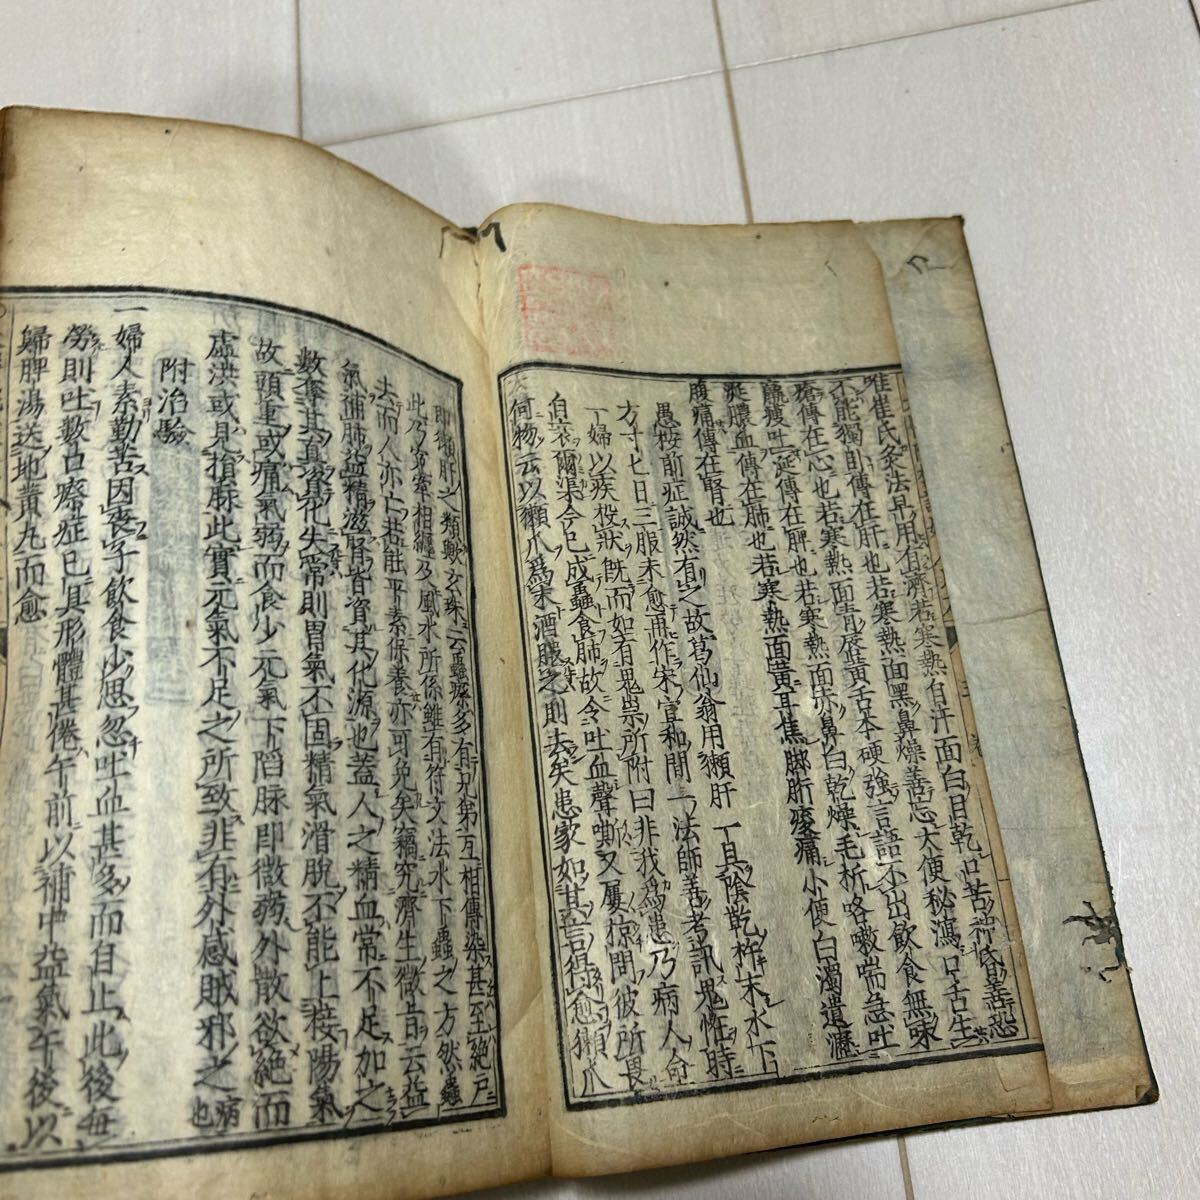 惟崔氏灸法早用有濟若寒熱自汗面白目乾口苦神昏善恐
不能獨卧傳在肝也若寒熱面黑鼻燥善忘大便秘瀉口舌生
瘡傳在心也若寒熱面青唇黃舌本硬強言語不出飲食無味
羸瘦吐涎傳在脾也若寒熱面赤鼻白乾燥毛折咯嗽喘急吐
涎膿血傳在肺也若寒熱面黃耳焦脚胻痠痛小便白濁遺瀝
腹痛傳在腎也
愚按前症誠然有之故葛仙翁用獺肝一具陰乾杵末水下
方寸七日三服未愈再作宋宣和間一法師善考訊鬼怪時
一婦以疾投狀既而如有鬼祟所附曰非我爲患乃病人命
自衰爾渠今已成蟲食肺故令吐血聲嘶又屢掠問彼所畏
何物云以獺爪爲末酒服之則去矣患家如其言得愈獺爪
即獺肝之類歟玄珠云蟲瘵多有兄弟互相傳染甚至絶戶
此乃寃牽相纏乃風水所係雖有符文法水下蟲之方然蟲
去而人亦亡若能平素保養亦可免矣竊究濟生微旨云益
氣補肺益精滋腎皆資其化源也蓋人之精血常不足加之
數奪其真資化失常則胃氣不固精氣滑脫不能上接陽氣
故頭重或痛氣弱而食少元氣下陷脉即微弱外散欲絶而
虛洪或見損脉此實元氣不足之所致非有外感賊邪之病也
附治驗
一婦人素勤苦因喪子飲食少思忽吐血甚多而自止此後每
勞則吐數口瘵症已具形體甚倦午前以補中益氣午後以
歸脾湯送地黃丸而愈